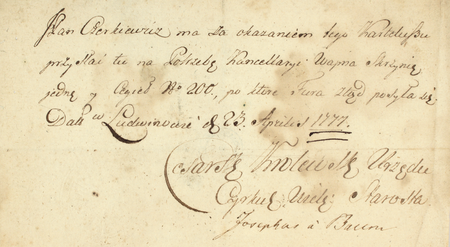 Jan Czerkiewicz ma za okazaniem tego Karteluszu
przysłać tu na Potrzebę Kancellaryi Wapna Skrzynię
jedną y Cegieł No 200, po które Fura ztąd posyła się
Dat w Ludwinowie d 23. Aprilis 1777.
Cesarsko Królewski Urzędu
Cyrkuł: Wiel: Starosta
Josephus à Baum